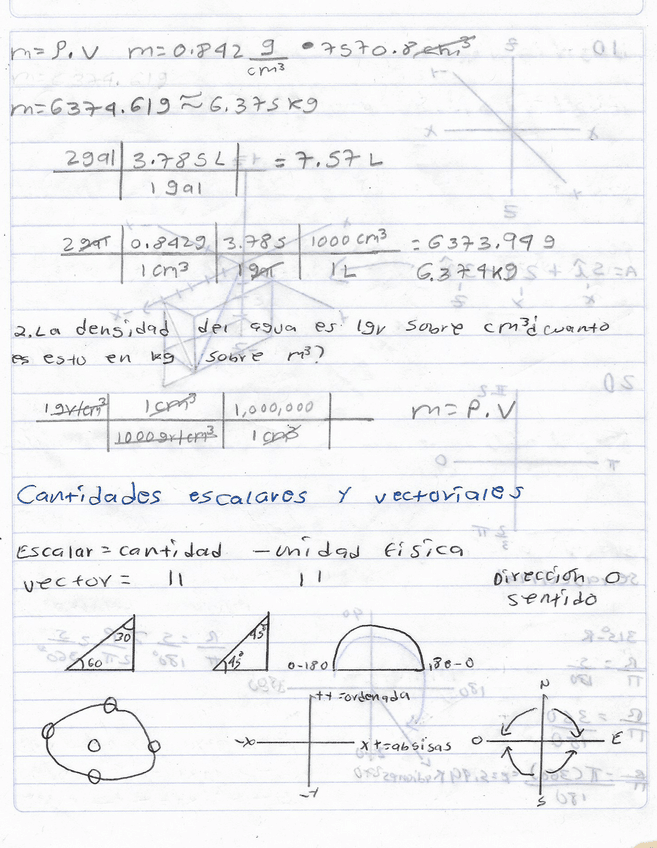 m=ρ.V m=0.842 g/cm³ • 7570.8 cm³
m=6374.619 ≈ 6.375 kg
2gal | 3.785 L = 7.57 L
1 gal
2 gal | 0.842g | 3.785 | 1000 cm³ = 6373.94 g
1cm³ | 1 gal | 1L 6.374 kg
2. La densidad del agua es 1gr sobre cm³ ¿cuanto
es esto en kg sobre m³?
1gr/cm³ | 1cm³ | 1,000,000 m=ρ.V
1000 gr/cm³ | 1cm³
Cantidades escalares y vectoriales
Escalar = cantidad – unidad física
vector = 11 11 Dirección o
sentido
30 45° 0-180 180-0
60 45°
++=ordenada N
-x x+=absisas O E
-y S